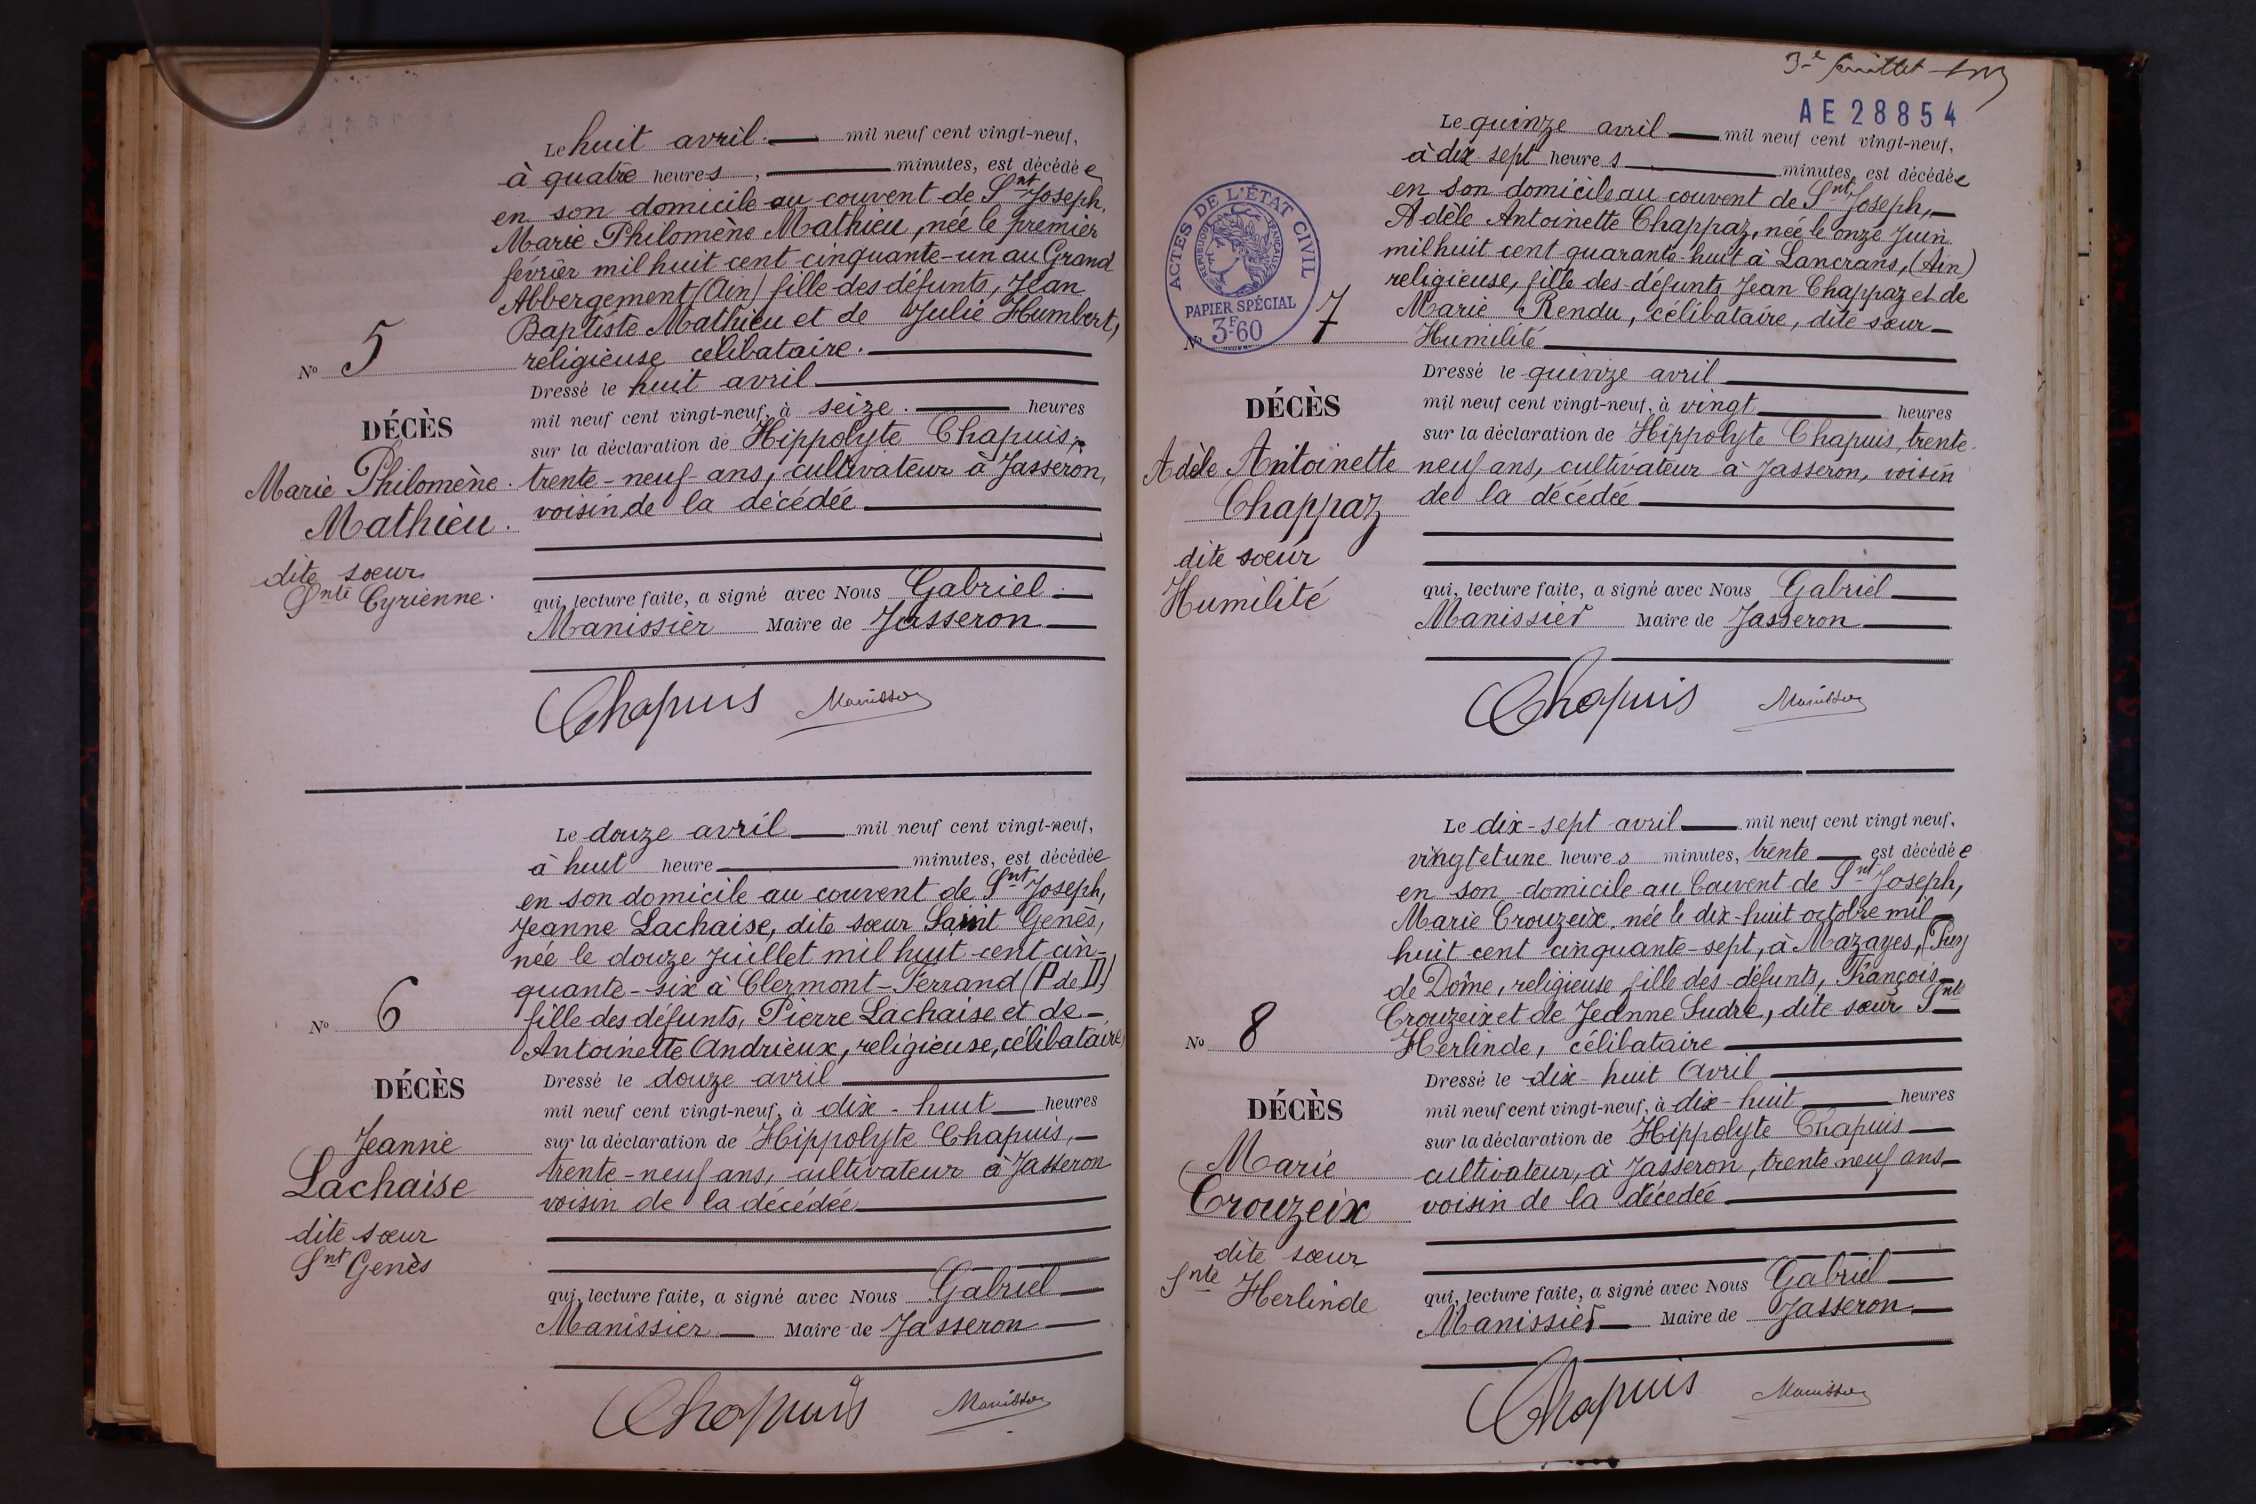 Le huit avril. mil neuf cent vingt-neuf,
à quatre heures, minutes, est décédée
en son domicile au couvent de Snt Joseph.
Marie Philomène Mathieu, née le premier
février mil huit cent cinquante-un au Grand
Abbergement (Ain) fille des défunts, Jean
Baptiste Mathieu et de Julie Humbert,
religieuse célibataire.
No 5
Dressé le huit avril
mil neuf cent vingt-neuf, à seize. heures
DÉCÈS
sur la déclaration de Hippolyte Chapuis,
Marie Philomène.
trente-neuf ans, cultivateur à Jasseron,
Mathieu.
voisin de la décédée
dite sœur
Snte Cyrienne.
qui, lecture faite, a signé avec Nous Gabriel
Manissier Maire de Jasseron
Chapuis Manissier
Le douze avril mil neuf cent vingt-neuf,
à huit heure minutes, est décédée
en son domicile au couvent de Snt Joseph,
Jeanne Lachaise, dite sœur Saint Genès,
née le douze Juillet mil huit cent cin-
quante-six à Clermont-Ferrand (P de D)
fille des défunts, Pierre Lachaise et de
Antoinette Andrieux, religieuse, célibataire
No 6
Dressé le douze avril
DÉCÈS
mil neuf cent vingt-neuf, à dix-huit heures
Jeanne
sur la déclaration de Hippolyte Chapuis,
Lachaise
trente-neuf ans, cultivateur à Jasseron
voisin de la décédée
dite sœur
Snt Genès
qui, lecture faite, a signé avec Nous Gabriel
Manissier Maire de Jasseron
Chapuis Manissier
3e feuillet
AE 28854
Le quinze avril mil neuf cent vingt-neuf,
à dix sept heures minutes, est décédée
en son domicile au couvent de Snt Joseph,
Adèle Antoinette Chappaz, née le onze Juin
mil huit cent quarante-huit à Lancrans, (Ain)
religieuse, fille des défunts Jean Chappaz et de
Marie Rendu, célibataire, dite sœur
Humilité
ACTES DE L'ÉTAT CIVIL
RÉPUBLIQUE FRANÇAISE
PAPIER SPÉCIAL
3F60
No 7
Dressé le quinze avril
DÉCÈS
mil neuf cent vingt-neuf, à vingt heures
sur la déclaration de Hippolyte Chapuis, trente-
Adèle Antoinette
neuf ans, cultivateur à Jasseron, voisin
Chappaz
de la décédée
dite sœur
Humilité
qui, lecture faite, a signé avec Nous Gabriel
Manissier Maire de Jasseron
Chapuis Manissier
Le dix-sept avril mil neuf cent vingt neuf,
vingt et une heures minutes, trente est décédée
en son domicile au Couvent de Snt Joseph,
Marie Crouzeix, née le dix-huit octobre mil
huit cent cinquante-sept, à Mazayes, (Puy
de Dôme, religieuse fille des défunts, François
Crouzeix et de Jeanne Sudre, dite sœur Snte
Herlinde, célibataire
No 8
Dressé le dix-huit Avril
DÉCÈS
mil neuf cent vingt-neuf, à dix-huit heures
sur la déclaration de Hippolyte Chapuis
Marie
cultivateur, à Jasseron, trente neuf ans
Crouzeix
voisin de la décédée
dite sœur
Snte Herlinde
qui, lecture faite, a signé avec Nous Gabriel
Manissier Maire de Jasseron
Chapuis Manissier